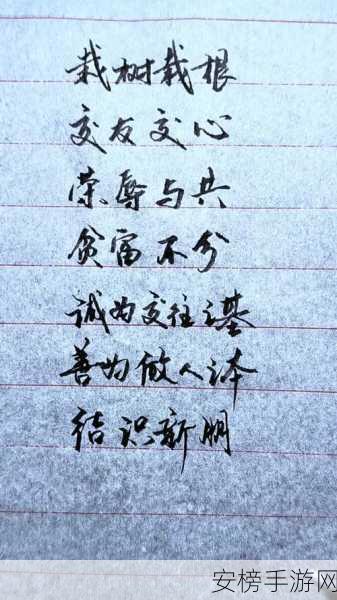 栽树栽根
交友交心
荣辱与共
贫富不分
诚为交往之基
善为做人之本
结识新朋
安榜手游网